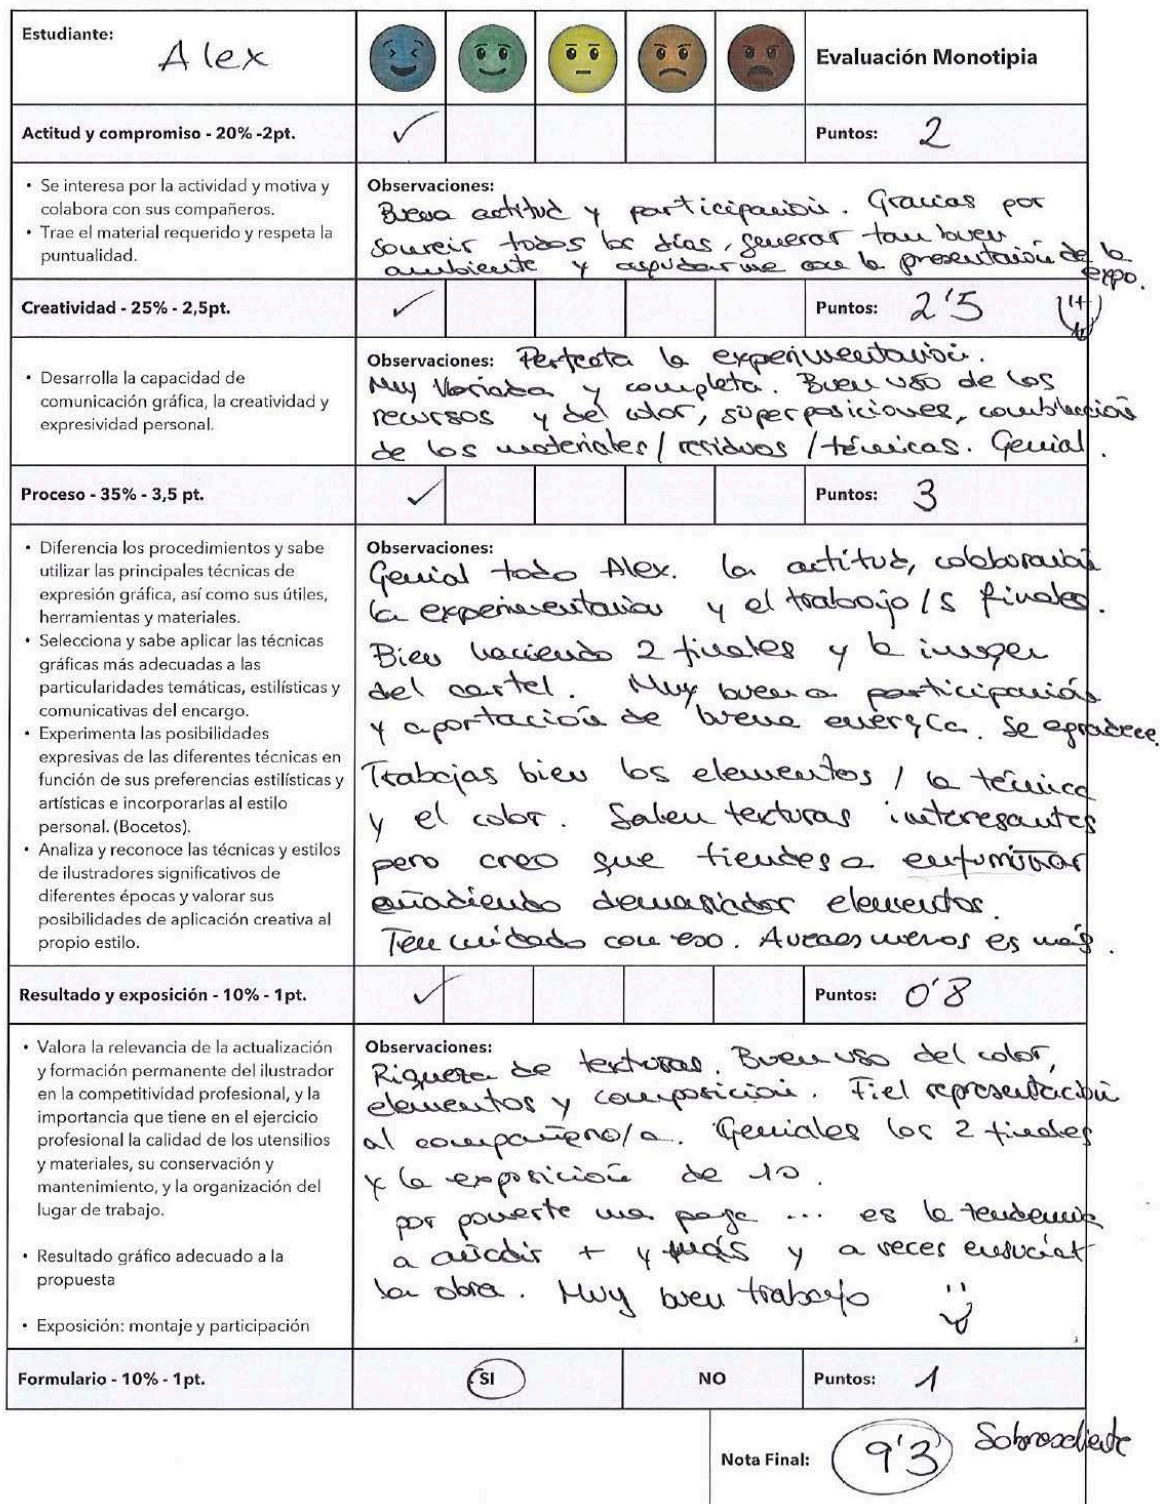 Estudiante:
Alex
Evaluación Monotipia
Actitud y compromiso - 20% -2pt.
Puntos: 2
• Se interesa por la actividad y motiva y
colabora con sus compañeros.
• Trae el material requerido y respeta la
puntualidad.
Observaciones:
Buena actitud y participación. Gracias por
sonreir todos los días, generar tan buen
ambiente y ayudarme con la presentación de la
expo.
Creatividad - 25% - 2,5pt.
Puntos: 2'5
• Desarrolla la capacidad de
comunicación gráfica, la creatividad y
expresividad personal.
Observaciones: Perfecta la experimentación.
Muy variada y completa. Buen uso de los
recursos y del color, superposiciones, combinación
de los materiales / residuos / técnicas. Genial.
Proceso - 35% - 3,5 pt.
Puntos: 3
• Diferencia los procedimientos y sabe
utilizar las principales técnicas de
expresión gráfica, así como sus útiles,
herramientas y materiales.
• Selecciona y sabe aplicar las técnicas
gráficas más adecuadas a las
particularidades temáticas, estilísticas y
comunicativas del encargo.
• Experimenta las posibilidades
expresivas de las diferentes técnicas en
función de sus preferencias estilísticas y
artísticas e incorporarlas al estilo
personal. (Bocetos).
• Analiza y reconoce las técnicas y estilos
de ilustradores significativos de
diferentes épocas y valorar sus
posibilidades de aplicación creativa al
propio estilo.
Observaciones:
Genial todo Alex. La actitud, colaboración
la experimentación y el trabajo/s finales.
Bien haciendo 2 finales y la imagen
del cartel. Muy buena participación
y aportación de buena energía. Se agradece.
Trabajas bien los elementos / la técnica
y el color. Salen texturas interesantes
pero creo que tiendes a
añadiendo demasiados elementos.
Ten cuidado con eso. Aveces menos es más.
Resultado y exposición - 10% - 1pt.
Puntos: 0'8
• Valora la relevancia de la actualización
y formación permanente del ilustrador
en la competitividad profesional, y la
importancia que tiene en el ejercicio
profesional la calidad de los utensilios
y materiales, su conservación y
mantenimiento, y la organización del
lugar de trabajo.
• Resultado gráfico adecuado a la
propuesta
• Exposición: montaje y participación
Observaciones:
Riqueza de texturas. Buen uso del color,
elementos y composición. Fiel representación
al compañero/a. Geniales los 2 finales
y la exposición de 10.
por ponerte una pega ... es la tendencia
a añadir + y más y a veces ensuciar
la obra. Muy buen trabajo
Formulario - 10% - 1pt.
SI
NO
Puntos: 1
Nota Final: 9'3 Sobresaliente